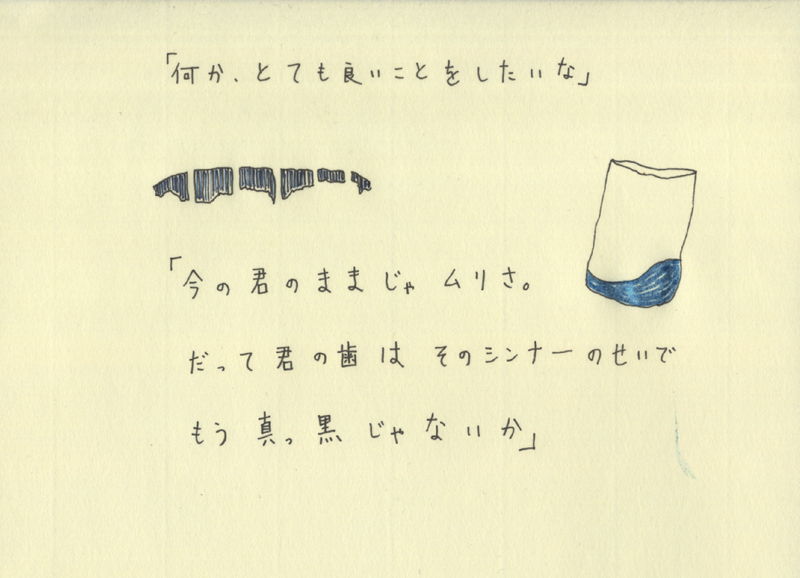 「何か、とても良いことをしたいな」
「今の君のままじゃ ムリさ。
だって君の歯は そのシンナーのせいで
もう真っ黒じゃないか」